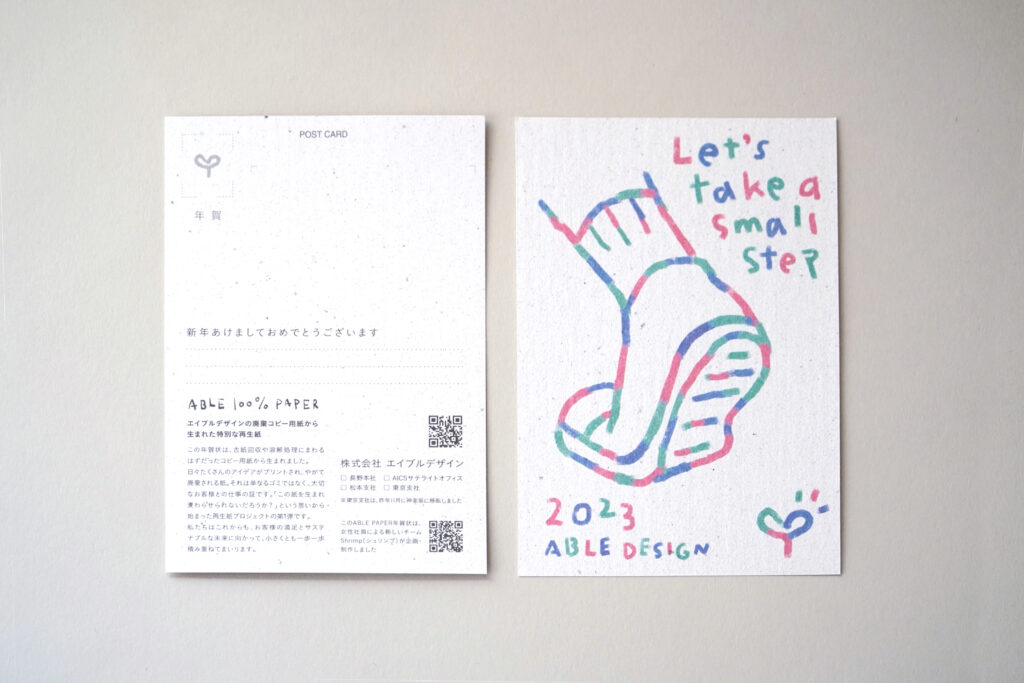 POST CARD
年賀
新年あけましておめでとうございます
ABLE 100% PAPER
エイブルデザインの廃棄コピー用紙から
生まれた特別な再生紙
この年賀状は、古紙回収や溶解処理にまわる
はずだったコピー用紙から生まれました。
日々たくさんのアイデアがプリントされ、やがて
廃棄される紙。それは単なるゴミではなく、大切
なお客様との仕事の証です。「この紙を生まれ
変わらせられないだろうか？」という思いから
始まった再生紙プロジェクトの第1弾です。
私たちはこれからも、お客様の満足とサステ
ナブルな未来に向かって、小さくとも一歩一歩
積み重ねてまいります。
株式会社 エイブルデザイン
□ 長野本社 □ AICSサテライトオフィス
□ 松本支社 □ 東京支社
※東京支社は、昨年11月に神楽坂に移転しました
このABLE PAPER年賀状は、
女性社員による新しいチーム
Shrimp(シュリンプ)が企画・
制作しました
Let's
take a
small
step
2023
ABLE DESIGN